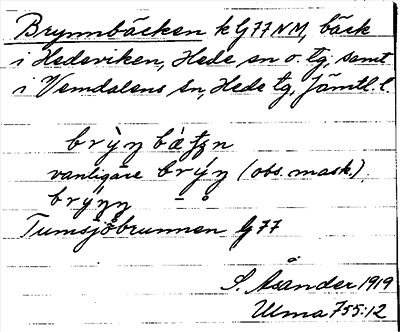 Brynnbäcken k G77 NM, bäck
i Hedeviken, Hede sn o. tg, samt
i Vemdalens sn, Hede tg, Jämtl. l.
vanligare brýn (obs. mask.),
Tumsjöbrunnen G77
S. Åsander 1919
Ulma 755:12